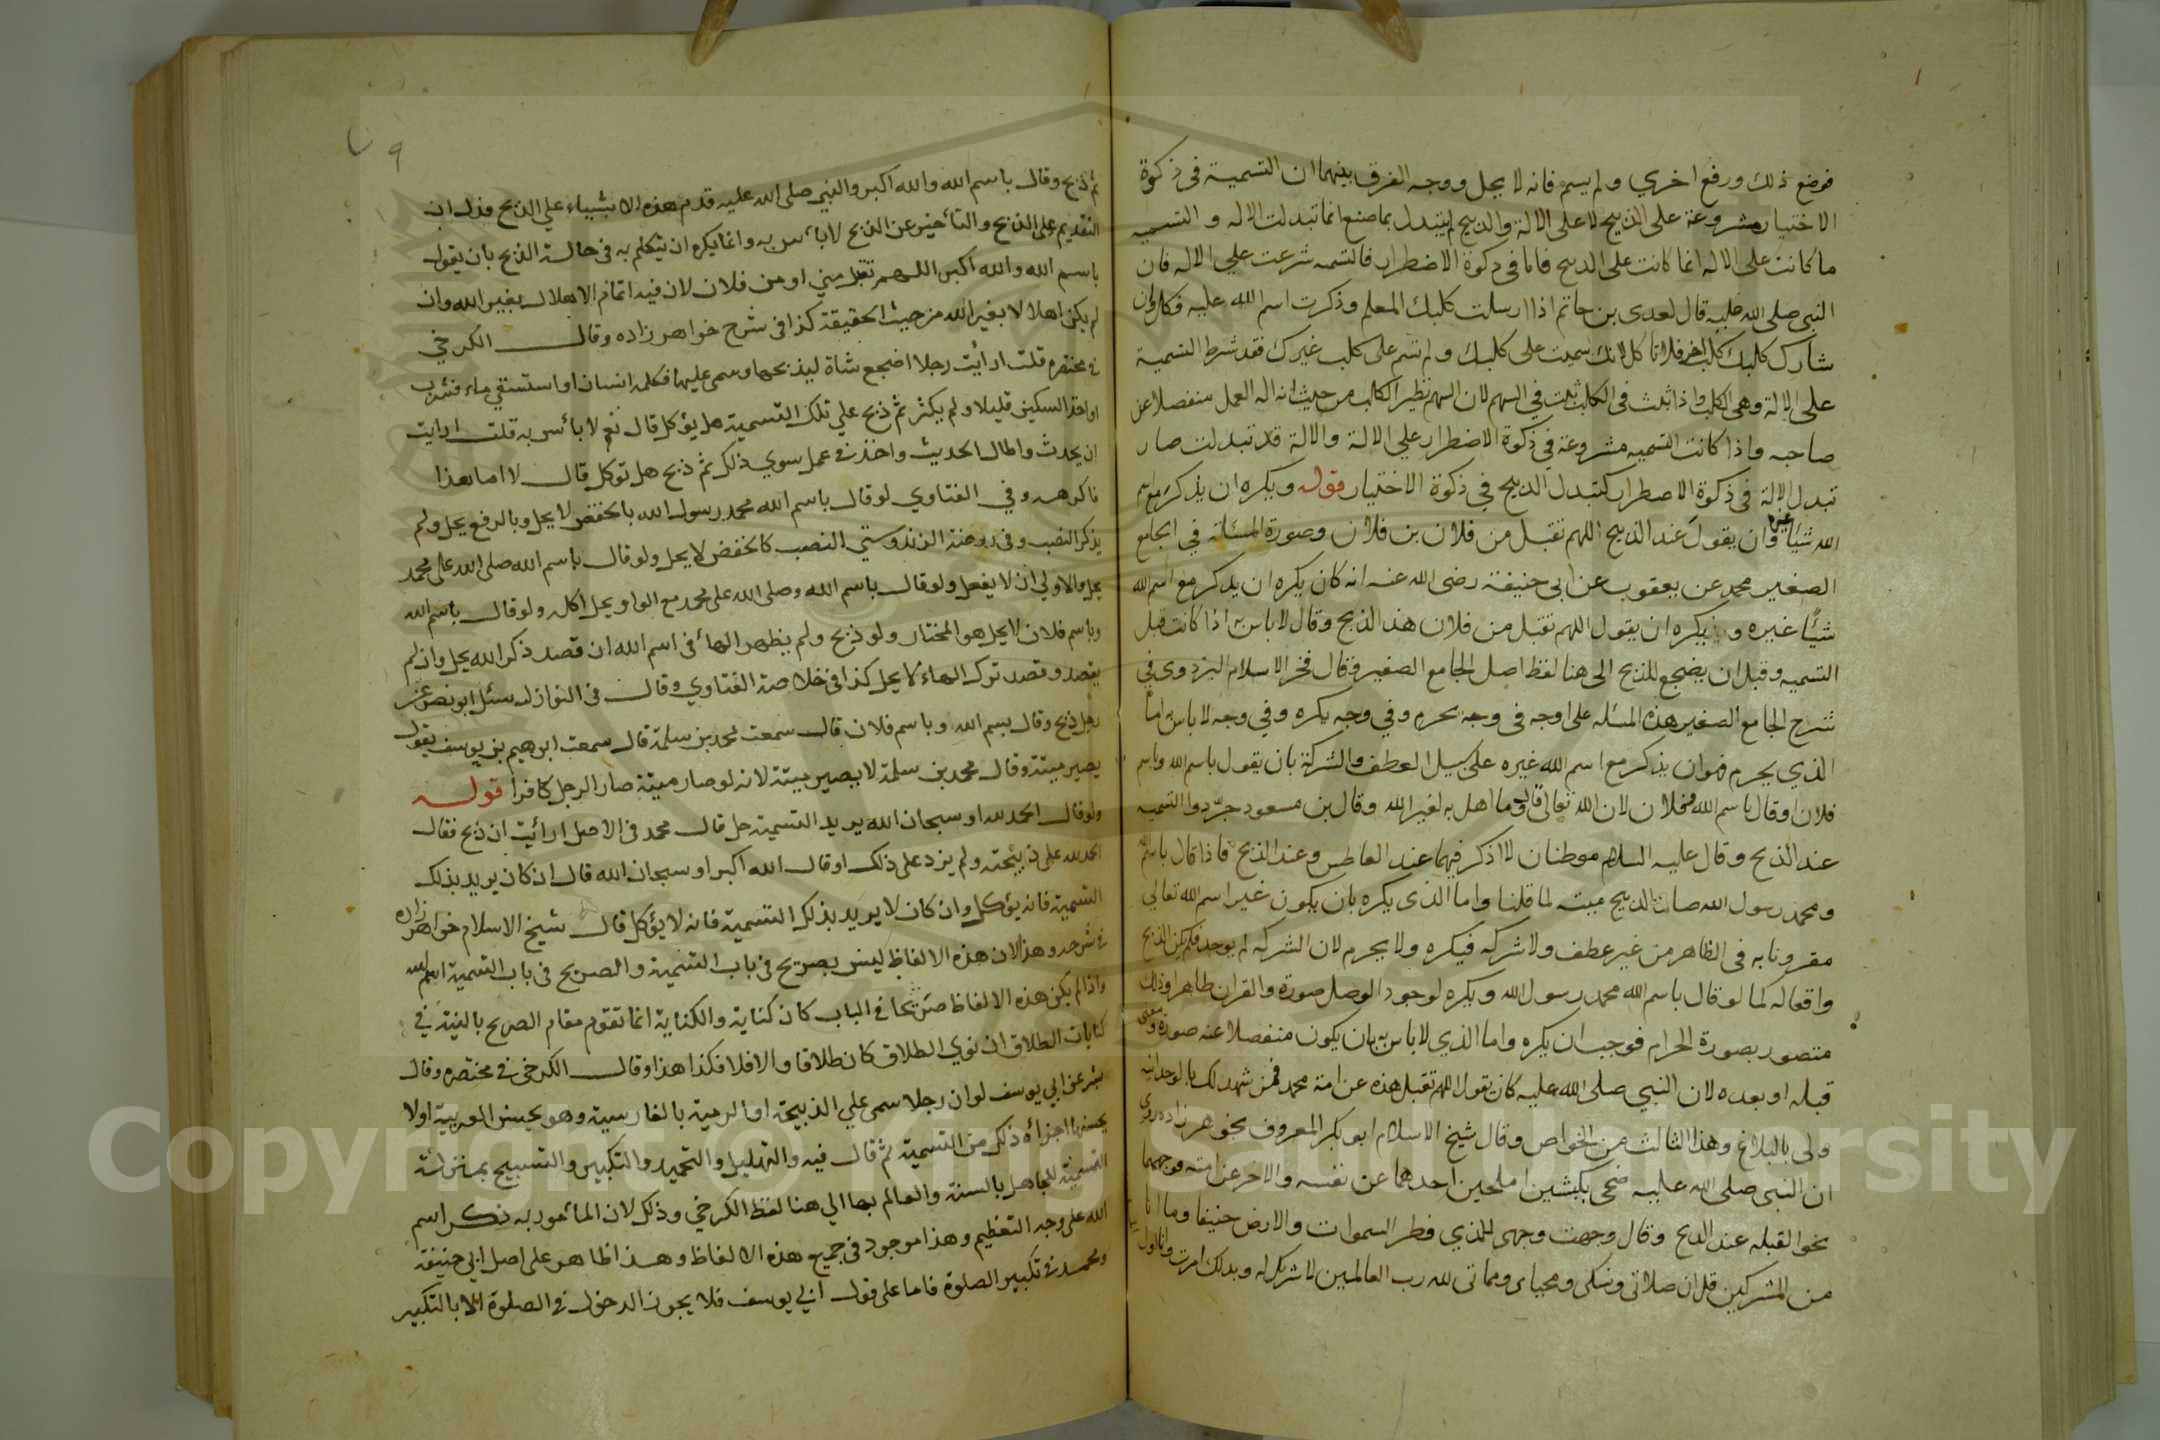 فوضع ذلك ورفع اخري ولم يسم فانه لا يحل ووجه الفرق بينهما ان التسمية في ذكوة
الاختيار مشروعة على الذبح لا على الالة والذبح لم يتبدل بما صنع انما تبدلت الاله والتسميه
ما كانت على الاله انما كانت على الذبح فاما في ذكوة الاضطرار فالتسميه شرعت على الاله فان
النبي صلى الله عليه قال لعدي بن حاتم اذا ارسلت كلبك المعلم وذكرت اسم الله عليه فكل وان
شارك كلبك كلب اخر فلا تاكل لانك سميت على كلبك ولم تسم على كلب غيرك فقد شرط التسمية
على الالة وهي الكلب واذا ثبت في الكلب ثبت في السهم لان السهم نظير الكلب من حيث انه اله العمل منفصلا عن
صاحبه واذا كانت التسميه مشروعة في ذكوة الاضطرار على الالة والالة قد تبدلت صار
تبدل الالة في ذكوة الاضطرار كتبدل الذبح في ذكوة الاختيار قوله ويكره ان يذكر مع اسم
الله شيئا غيره وان يقول عند الذبح اللهم تقبل من فلان بن فلان وصورة المسئلة في الجامع
الصغير محمد عن يعقوب عن ابى حنيفة رضى الله عنه انه كان يكره ان يذكر مع اسم الله
شيئا غيره ويكره ان يقول اللهم تقبل من فلان هند الذبح وقال لا باس به اذا كانت قبل
التسميه وقبل ان يضجع للذبح الى هنا لفظ اصل الجامع الصغير وقال فخر الاسلام البزدوى في
شرح الجامع الصغير هذه المسئله على اوجه في وجه يحرم وفي وجه يكره وفي وجه لا باس به اما
الذي يحرم فهو ان يذكر مع اسم الله غيره على سبيل العطف والشركة بان يقول باسم الله وباسم
فلان او قال باسم الله وفلان لان الله تعالى قال وما اهل به لغير الله وقال بن مسعود جرّدوا التسميه
عند الذبح وقال عليه السلام موطنان لا اذكر فيهما عند العاطس وعند الذبح فاذا قال باسم الله
ومحمد رسول الله صارت الذبيح ميته لما قلنا واما الذى يكره بان يكون غير اسم الله تعالى
مقرونا به في الظاهر من غير عطف ولا شركه فيكره ولا يحرم لان الشركه لم يوجد فلم يكن الذبح
واقعا له كما لو قال باسم الله محمد رسول الله ويكره لوجود الوصل صورة والقران ظاهرا وذلك
متصور بصورة الحرام فوجب ان يكره واما الذي لا باس به بان يكون منفصلا عنه صورة ومعنى
قبله او بعده لان النبي صلى الله عليه كان يقول اللهم تقبل هذه عن امة محمد فمن شهد لك بالوحدانيه
ولى بالبلاغ وهذا الثالث من الخواص وقال شيخ الاسلام ابو بكر المعروف بخوهر زاده روى
ان النبي صلى الله عليه ضحى بكبشين املحين احدهما عن نفسه والاخر عن امته فوجههما
نحو القبله عند الذبح وقال وجهت وجهى للذي فطر السموات والارض حنيفا وما انا
من المشركين قل ان صلاتى ونسكى ومحياى ومماتى لله رب العالمين لا شريك له وبذلك امرت وانا اول
ثم ذبح وقال باسم الله والله اكبر والنبي صلى الله عليه قدم هذه الاشياء علي الذبح فدل ان
التقديم على الذبح والتأخير عن الذبح لا بأس به وانما يكره ان يتكلم به في حالة الذبح بان يقول
باسم الله والله اكبر اللهم تقبل مني او من فلان لان فيه اتمام الاهلال بغير الله وان
لم يكن اهلا لا بغير الله من حيث الحقيقة كذا في شرح خواهر زاده وقال الكرخي
في مختصره قلت ارأيت رجلا اضجع شاة ليذبحها وسمى عليها فكلمه انسان او استسقي ماء فشرب
او اخذ السكين قليلا ولم يكثر ثم ذبح علي تلك التسمية هل يؤكل قال نعم لا بأس به قلت ارايت
ان يحدث واطال الحديث واخذ في عمل سوي ذلك ثم ذبح هل توكل قال لا اما هذا
فاكرهه وفي الفتاوي لو قال باسم الله محمد رسول الله بالخفض لا يحل وبالرفع يحل ولم
يذكر النصب وفي روضة الزندوستي النصب كالخفض لا يحل ولو قال باسم الله صلى الله على محمد
يحل والاولي ان لا يفعل ولو قال باسم الله وصلى الله على محمد مع الواو يحل اكله ولو قال باسم الله
وباسم فلان لا يحل هو المختار ولو ذبح ولم يظهر الهاء في اسم الله ان قصد ذكر الله يحل وان لم
يقصد وقصد ترك الهاء لا يحل كذا في خلاصة الفتاوي وقال في النوازل سئل ابو نصر عن
رجل ذبح وقال بسم الله وباسم فلان قال سمعت محمد بن سلمة قال سمعت ابرهيم بن يوسف يقول
يصير ميتة وقال محمد بن سلمة لا يصير ميتة لانه لو صار ميتة صار الرجل كافرا قوله
ولو قال الحمد لله او سبحان الله يريد التسمية حل قال محمد في الاصل ارائيت ان ذبح فقال
الحمد لله على ذبيحته ولم يزد على ذلك او قال الله اكبر او سبحان الله قال ان كان يريد بذلك
التسمية فانه يؤكل وان كان لا يريد بذلك التسمية فانه لا يؤكل قال شيخ الاسلام خواهر زاده
في شرحه وهذا لان هذه الالفاظ ليس بصريح في باب التسمية والصريح في باب التسمية اسم الله
واذا لم يكن هذه الالفاظ صريحا في الباب كان كناية والكناية انما تقوم مقام الصريح بالنية في
كنايات الطلاق ان نوي الطلاق كان طلاقا والا فلا فكذا هذا وقال الكرخي في مختصره وقال
بشر عن ابي يوسف لو ان رجلا سمى علي الذبيحة او الرمية بالفارسية وهو يحسن العربية او لا
يحسنها اجزأه ذلك من التسمية ثم قال فيه والتهليل والتحميد والتكبير والتسبيح بمنزلة
التسمية للجاهل بالسنة والعالم بها الي هنا لفظ الكرخي وذلك لان المأمور به ذكر اسم
الله على وجه التعظيم وهذا موجود في جميع هذه الالفاظ وهذا ظاهر على اصل ابي حنيفة
ومحمد في تكبير الصلوة فاما على قول ابي يوسف فلا يجوز الدخول في الصلوة الا بالتكبير
Copyright © King Saud University